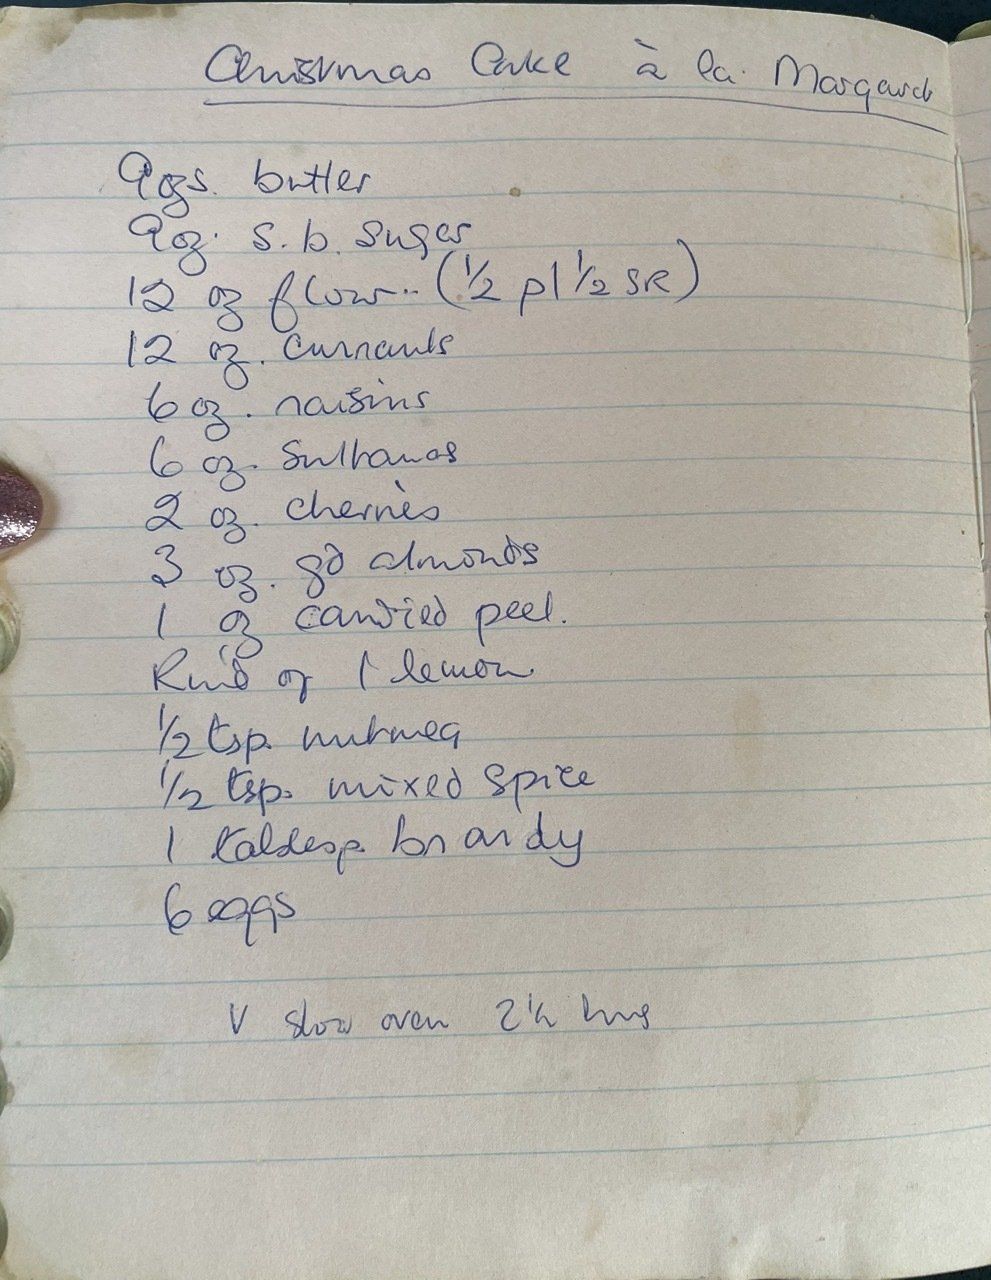 Christmas Cake à la Margaret
9ozs. butter
9oz. s.b. sugar
12 oz flour.. (1/2 pl 1/2 SR)
12 oz. currants
6 oz. raisins
6 oz. Sultanas
2 oz. cherries
3 oz. gd almonds
1 oz candied peel.
Rind of 1 lemon.
1/2 tsp. nutmeg
1/2 tsp. mixed spice
1 tablesp. brandy
6 eggs
V slow oven 2 1/2 hrs